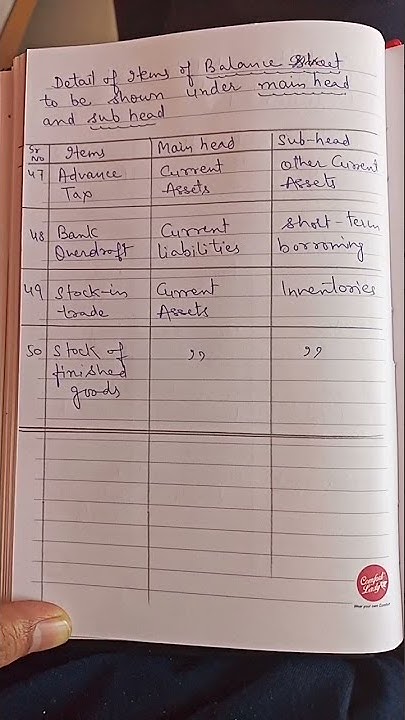 Detail of Items of Balance Sheet
to be shown under main head
and sub head
Sr No Items Main head Sub-head
47 Advance Tax Current Assets Other Current Assets
48 Bank Overdraft Current liabilities Short-term borrowing
49 Stock-in-trade Current Assets Inventories
50 Stock of finished goods ,, ,,
Comfort
Lady
Wear your own Comfort